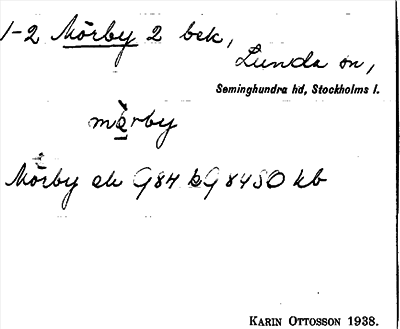 1-2 Mörby 2 bek,
Lunda sn,
Seminghundra hd, Stockholms l.
mèrby
Mörby ek G84 kG8450 kb
KARIN OTTOSSON 1938.